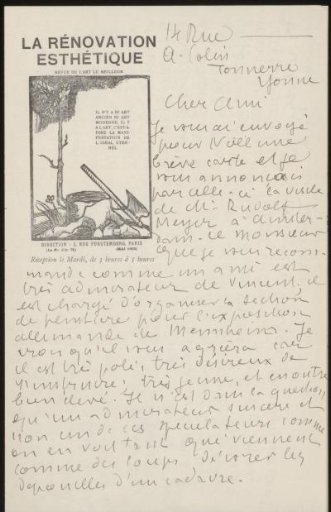 14 Rue
A. Colin
Tonnerre
Yonne
LA RÉNOVATION
ESTHÉTIQUE
REVUE DE L'ART LE MEILLEUR
IL N'Y A NI ART
ANCIEN NI ART
MODERNE, IL Y
A L'ART, C'EST-À-
DIRE LA MANI-
FESTATION DE
L'IDÉAL ÉTER-
NEL
DIRECTION : 5, RUE FURSTEMBERG, PARIS
Réception le Mardi, de 5 heures à 7 heures
Cher Ami
Je vous ai envoyé
pour Noël une
brève carte et je
vous annonçais
par celle-ci la visite
de Mr. Rudolf
Meyer à Amster-
dam. Ce monsieur
que je vous recom-
mande comme un ami est
très admirateur de Vincent, il
est chargé d'organiser la section
de peinture pour l'exposition
allemande de Mannheim. Je
crois qu'il vous agréera car
il est très poli, très désireux de
s'instruire, très jeune, et en outre
bien élevé. Je n'est dans la question
qu'un admirateur sincère et
non un de ces spéculateurs comme
on en voit tant qui viennent
comme des loups dévorer les
dépouilles d'un cadavre.